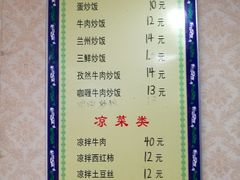 蛋炒饭 10元
牛肉炒饭 12元
兰州炒饭 14元
三鲜炒饭 12元
孜然牛肉炒饭 14元
咖喱牛肉炒饭 13元
凉菜类
凉拌牛肉 40元
凉拌西红柿 12元
凉拌土豆丝 12元